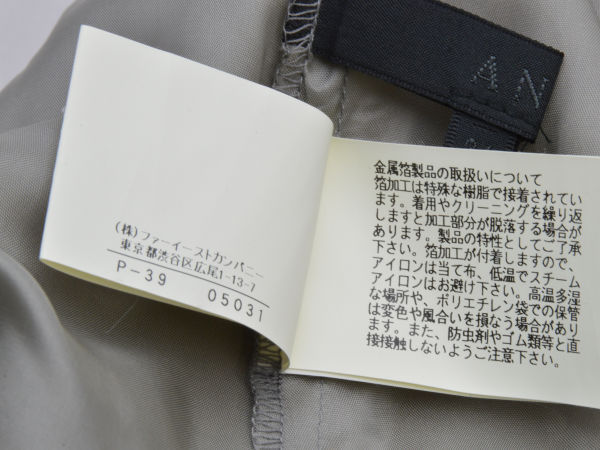 AN
(株)ファーイーストカンパニー
東京都渋谷区広尾1-13-7
P-39 05031
金属箔製品の取扱いについて
箔加工は特殊な樹脂で接着されてい
ます。着用やクリーニングを繰り返
しますと加工部分が脱落する場合が
あります。製品の特性としてご了承
下さい。箔加工が付着しますので、
アイロンは当て布、低温でスチーム
アイロンはお避け下さい。高温多湿
な場所や、ポリエチレン袋での保管
は変色や風合いを損なう場合があり
ます。また、防虫剤やゴム類等と直
接接触しないようご注意下さい。